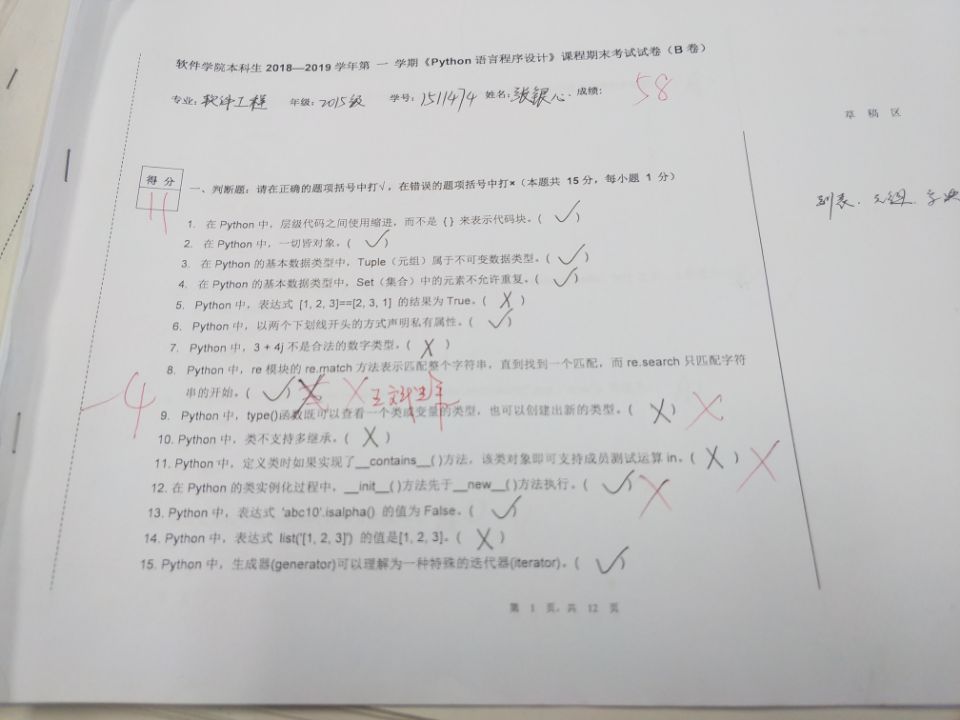 软件学院本科生 2018—2019 学年第 一 学期《Python 语言程序设计》课程期末考试试卷（B 卷）
专业：软件工程 年级：2015级 学号：1511474 姓名：张银心 成绩：58
草 稿 区
得 分
11
一、判断题：请在正确的题项括号中打√，在错误的题项括号中打×（本题共 15 分，每小题 1 分）
列表、元组、字典
1. 在 Python 中，层级代码之间使用缩进，而不是 { } 来表示代码块。( √ )
2. 在 Python 中，一切皆对象。( √ )
3. 在 Python 的基本数据类型中，Tuple（元组）属于不可变数据类型。( √ )
4. 在 Python 的基本数据类型中，Set（集合）中的元素不允许重复。( √ )
5. Python 中，表达式 [1, 2, 3]==[2, 3, 1] 的结果为 True。( X )
6. Python 中，以两个下划线开头的方式声明私有属性。( √ )
7. Python 中，3 + 4j 不是合法的数字类型。( X )
8. Python 中，re 模块的 re.match 方法表示匹配整个字符串，直到找到一个匹配，而 re.search 只匹配字符
串的开始。( √ ) X X
-4
9. Python 中，type()函数既可以查看一个类或变量的类型，也可以创建出新的类型。( X ) X
10. Python 中，类不支持多继承。( X )
11. Python 中，定义类时如果实现了__contains__( )方法，该类对象即可支持成员测试运算 in。( X ) X
12. 在 Python 的类实例化过程中，__init__( )方法先于__new__( )方法执行。( √ ) X
13. Python 中，表达式 'abc10'.isalpha() 的值为 False。( √ )
14. Python 中，表达式 list('[1, 2, 3]') 的值是[1, 2, 3]。( X )
15. Python 中，生成器(generator)可以理解为一种特殊的迭代器(iterator)。( √ )
第 1 页，共 12 页